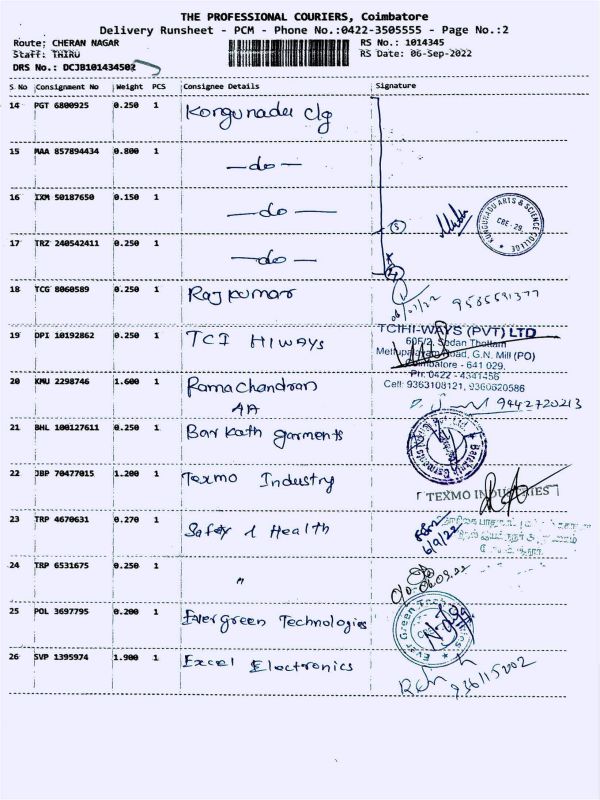 THE PROFESSIONAL COURIERS, Coimbatore
Delivery Runsheet - PCM - Phone No.:0422-3505555 - Page No.:2
Route: CHERAN NAGAR RS No.: 1014345
Staff: THIRU RS Date: 06-Sep-2022
DRS No.: DCJB101434502
S No Consignment No Weight PCS Consignee Details Signature
14 PGT 6800925 0.250 1 Kongunadu clg
15 MAA 857894434 0.800 1 —do—
16 IXM 50187650 0.150 1 —do— 5
KUNGUNADU ARTS & SCIENCE COLLEGE CBE-29.
17 TRZ 240542411 0.250 1 —do—
18 TCG 8060589 0.250 1 Raj kumar
19 DPI 10192862 0.250 1 TCI HIWAYS
TCIHI-WAYS (PVT) LTD
60F/2, Sedan Thottam
Mettupalayam Road, G.N. Mill (PO)
Coimbatore - 641 029.
Ph: 0422 - 4341456
Cell: 9363108121, 9360620586
20 KMU 2298746 1.600 1 Ramachandran 9442720213
AA
21 BHL 100127611 0.250 1 Barkath garments
22 JBP 70477015 1.200 1 Texmo Industry
TEXMO INDUSTRIES
23 TRP 4670631 0.270 1 Safety & Health 6/9/22
24 TRP 6531675 0.250 1 "
25 POL 3697795 0.200 1 Evergreen Technologies
26 SVP 1395974 1.900 1 Excel Electronics